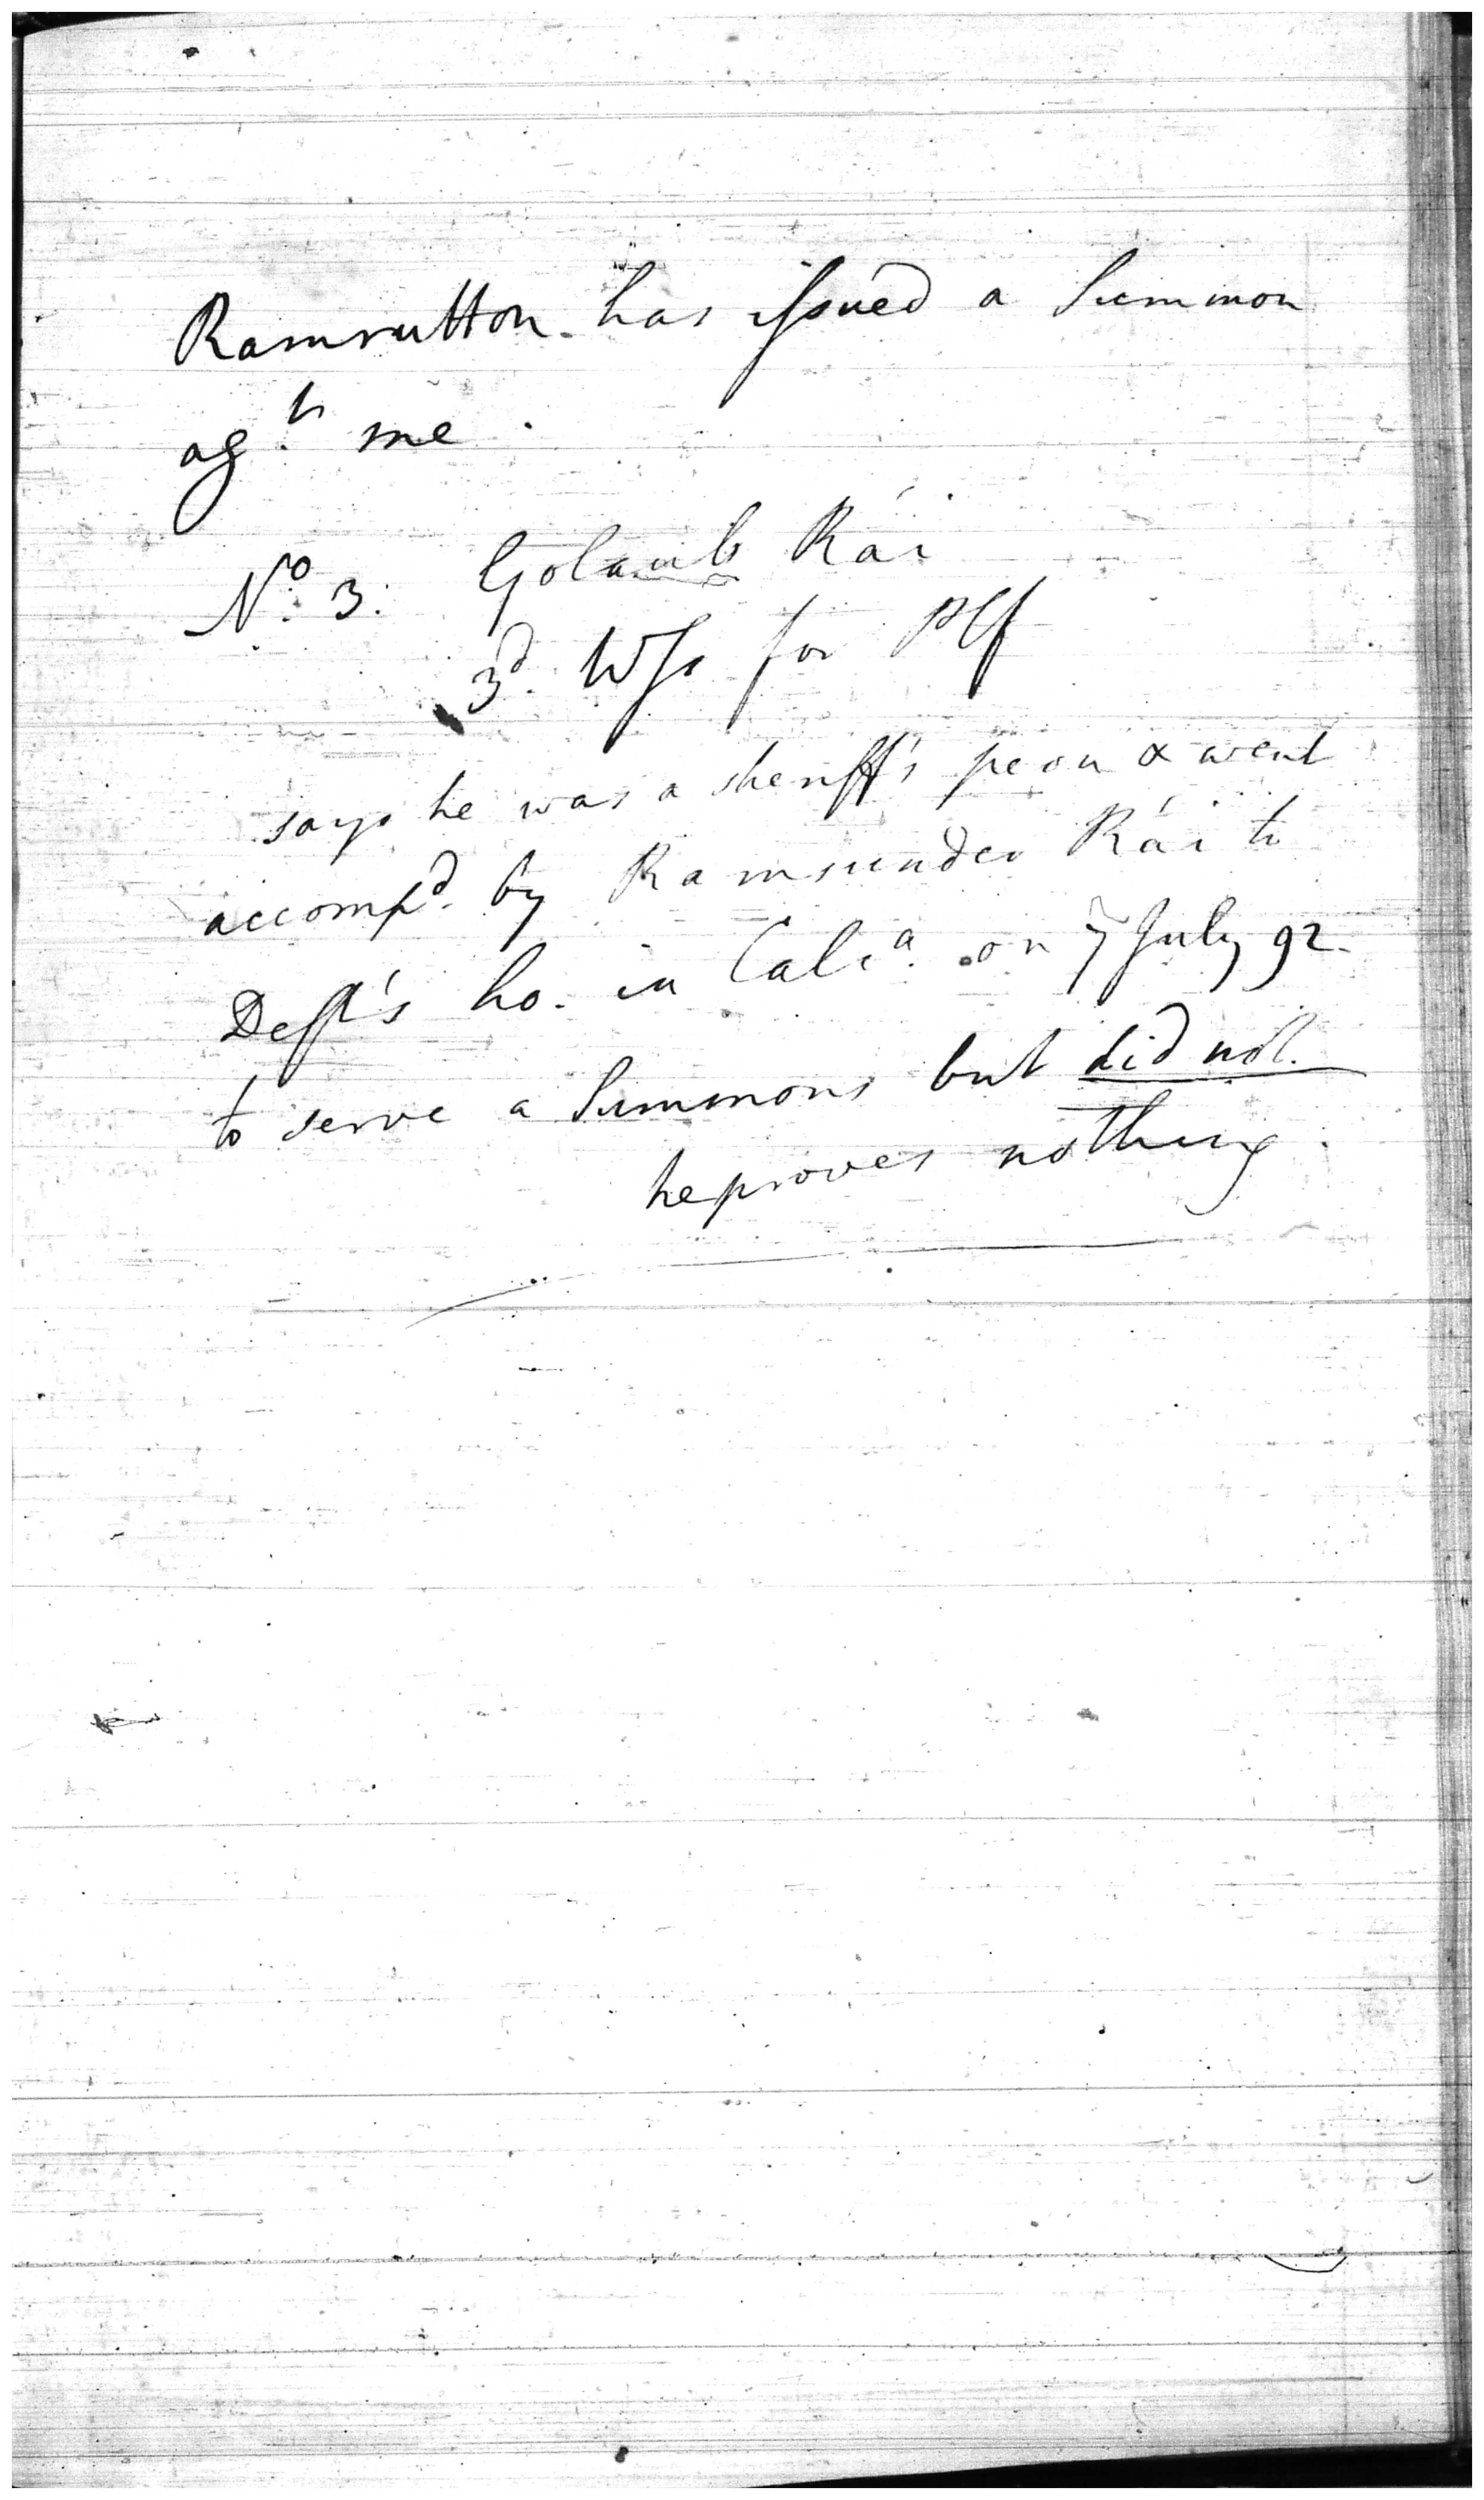 Ramrutton has issued a Summon
agst me.
No. 3. Golaub Rái
3d. Wss for Plf
says he was a sheriff's peon & went
accompd. by Ramsunder Rái to
Deft's ho. in Calca. on 7 July 92.
to serve a Summons but did not.
he proves nothing.